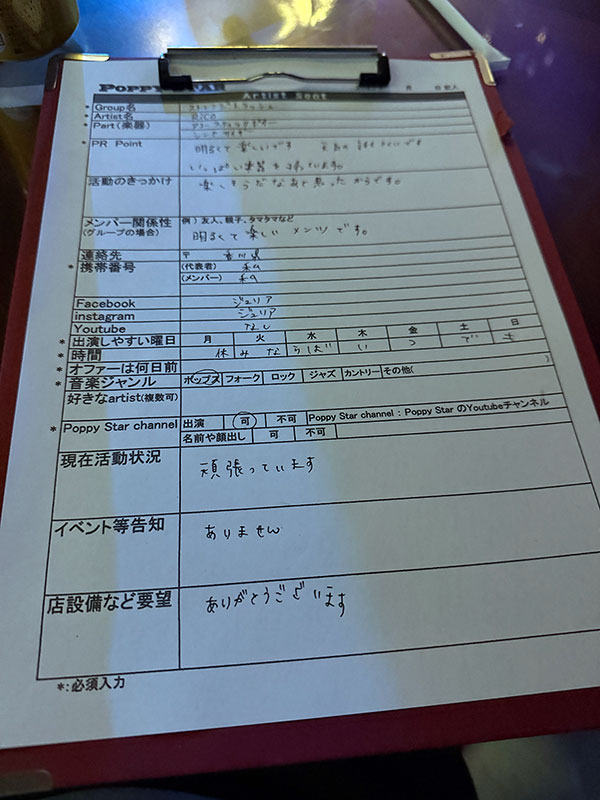 POPPY STAR
月 日 記入
Artist Seat
* Group名
* Artist名 RICO
* Part(楽器)
* PR Point 明るくて楽しいです
活動のきっかけ 楽しそうだなあと思ったからです。
メンバー関係性 例)友人、親子、タマタマなど
(グループの場合) 明るくて楽しいメンツです。
連絡先 〒 香川県
* 携帯番号 (代表者) 私
(メンバー) 私
Facebook ジュリア
instagram ジュリア
Youtube なし
* 出演しやすい曜日 月 火 水 木 金 土 日
* 時間 休みならばいつでも
* オファーは何日前
* 音楽ジャンル ポップス フォーク ロック ジャズ カントリー その他( )
好きなartist(複数可)
* Poppy Star channel 出演 可 不可 Poppy Star channel : Poppy Star のYoutubeチャンネル
名前や顔出し 可 不可
現在活動状況 頑張っています
イベント等告知 ありません
店設備など要望 ありがとうございます
*:必須入力